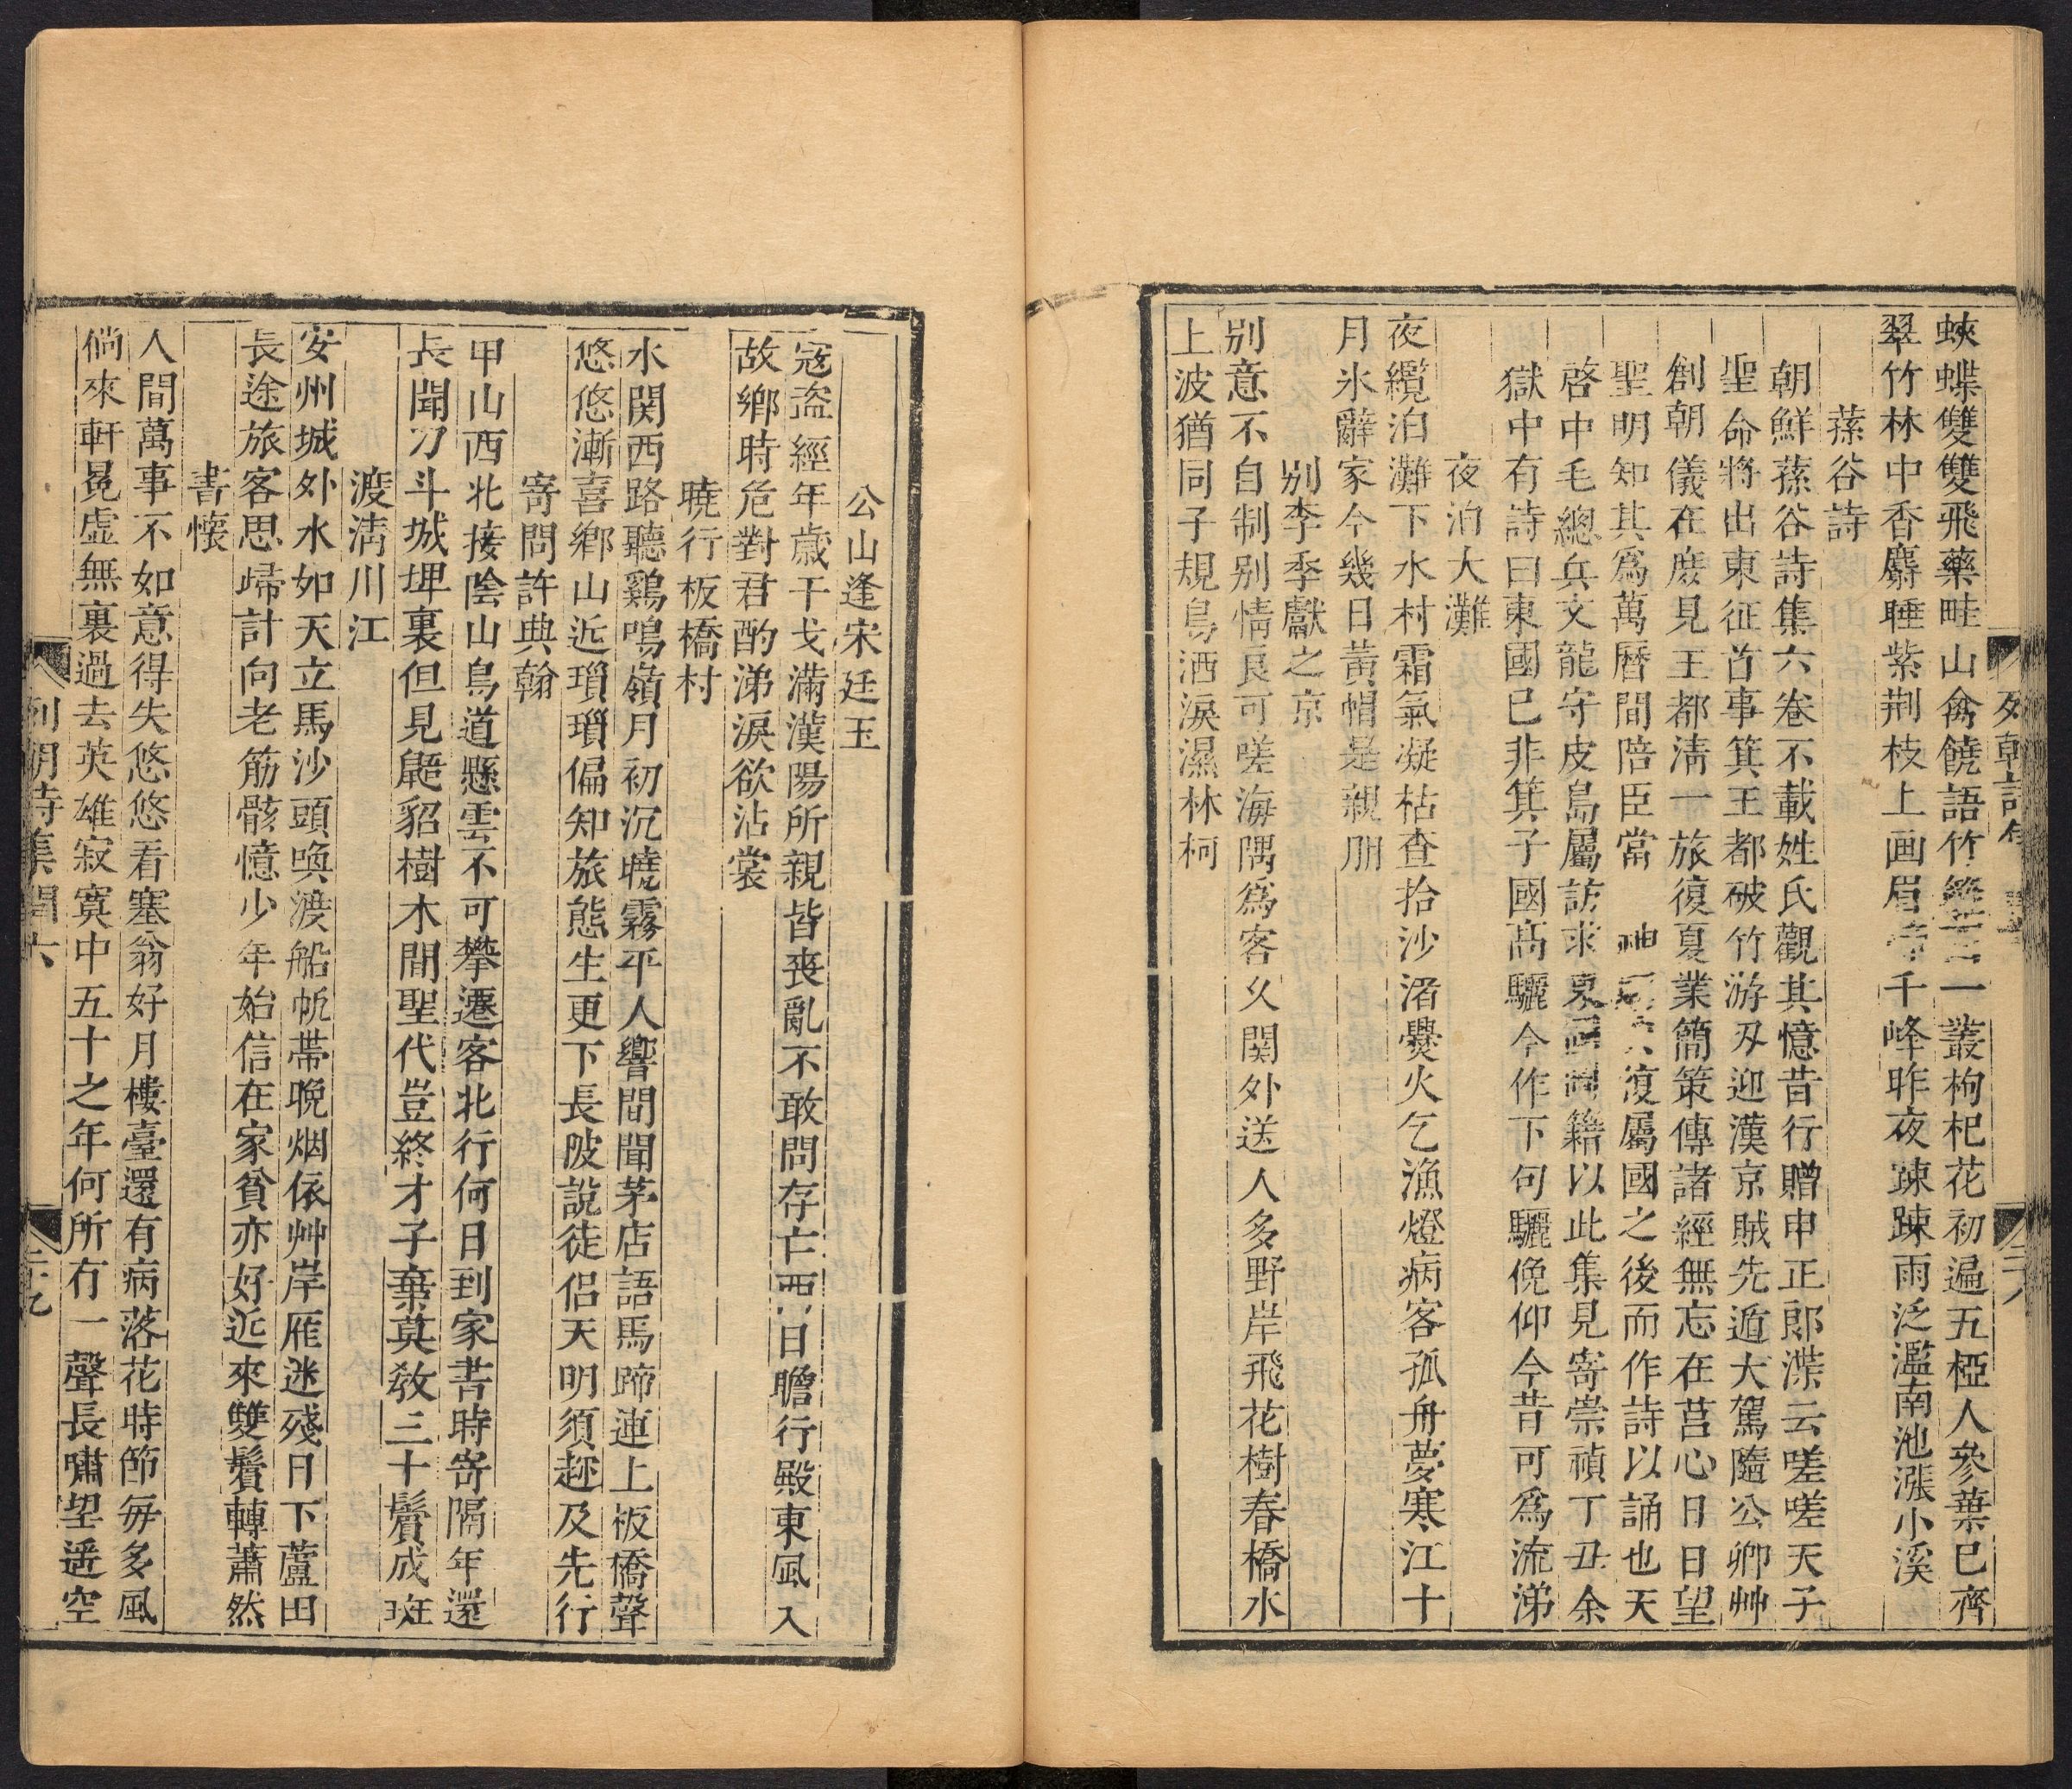 蛺蝶雙雙飛藥畦山禽饒語竹一叢枸杞花初遍五椏人參葉已齊
翠竹林中香麝睡紫荆枝上画眉千峰昨夜踈踈雨泛濫南池漲小溪
蓀谷詩
朝鮮蓀谷詩集六卷不載姓氏觀其憶昔行贈申正郎渫云嗟嗟天子
聖命將出東征首事箕王都破竹游刃迎漢京賊先遁大駕隨公卿艸
創朝儀在庻見王都淸一旅復夏業簡策傳諸經無忘在莒心日日望
聖明知其爲萬曆間陪臣當神復屬國之後而作詩以誦也天
啓中毛總兵文龍守皮島屬訪求東籍以此集見寄崇禎丁丑余
獄中有詩曰東國已非箕子國髙驪今作下句驪俛仰今昔可爲流涕
夜泊大灘
夜纜泊灘下水村霜氣凝枯查拾沙渚爨火乞漁燈病客孤舟夢寒江十
月氷辭家今幾日黃帽是親朋
别李季獻之京
别意不自制别情良可嗟海隅爲客久関外送人多野岸飛花樹春橋水
上波猶同子規鳥洒淚濕林柯
列朝詩集
二十八
公山逢宋廷玉
寇盗經年歲干戈滿漢陽所親皆喪亂不敢問存亡西日瞻行殿東風入
故鄉時危對君酌涕淚欲沾裳
曉行板橋村
水関西路聽鷄鳴嶺月初沉曉霧平人響間聞茅店語馬蹄連上板橋聲
悠悠漸喜鄉山近瑣瑣偏知旅態生更下長陂說徒侶天明須趂及先行
寄問許典翰
甲山西北接陰山鳥道懸雲不可攀遷客北行何日到家書時寄隔年還
長聞刀斗城埤裏但見鼯貂樹木間聖代豈終才子棄莫敎三十鬢成斑
渡淸川江
安州城外水如天立馬沙頭喚渡船帆帶晚烟依艸岸雁迷殘日下蘆田
長途旅客思歸計向老筋骸憶少年始信在家貧亦好近來雙鬢轉蕭然
書懷
人間萬事不如意得失悠悠看塞翁好月樓臺還有病落花時節每多風
倘來軒冕虛無裏過去英雄寂寞中五十之年何所有一聲長嘯望遥空
列朝詩集閏六
二十九